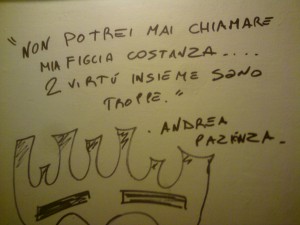 "NON POTREI MAI CHIAMARE
MIA FIGLIA COSTANZA....
2 VIRTÚ INSIEME SONO
TROPPE."
. ANDREA
PAZIENZA.